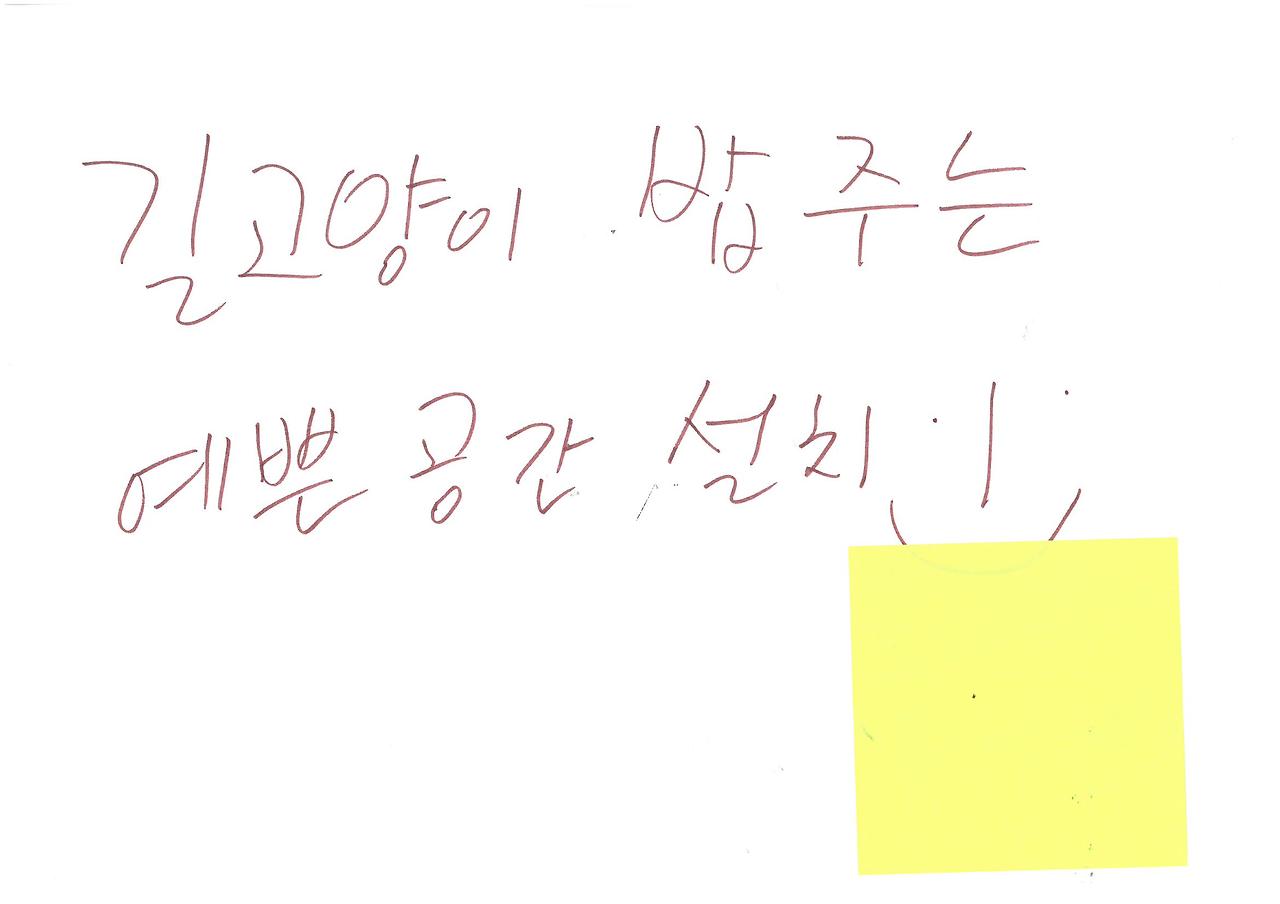 길고양이 밥 주는
예쁜 공간 설치